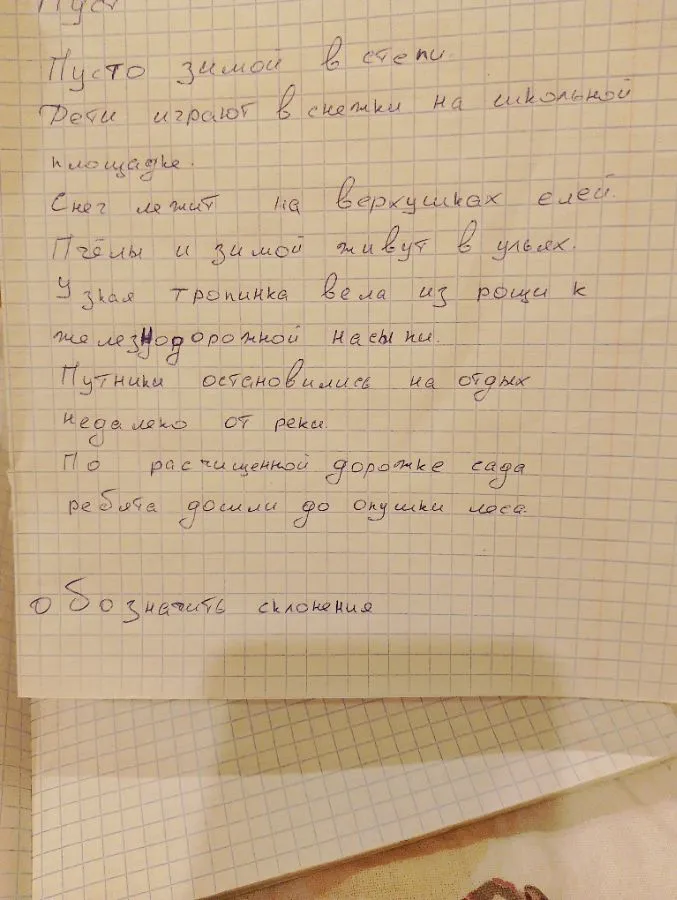 Пуст
Пусто зимой в степи.
Дети играют в снежки на школьной
площадке.
Снег лежит на верхушках елей.
Пчёлы и зимой живут в ульях.
Узкая тропинка вела из рощи к
железнодорожной насыпи.
Путники остановились на отдых
недалеко от реки.
По расчищенной дорожке сада
ребята дошли до опушки леса.
обозначить склонения